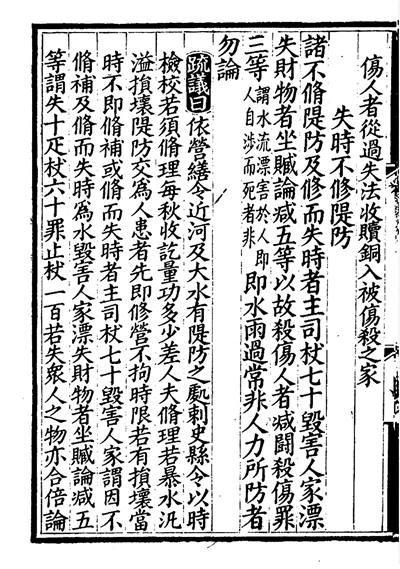 傷人者從過失法收贖銅入被傷殺之家
失時不修隄防
諸不脩隄防及修而失時者主司杖七十毀害人家漂
失財物者坐贓論减五等以故殺傷人者减鬭殺傷罪
三等謂水流漂害於人即人自涉而死者非即水雨過常非人力所防者
勿論
疏議曰依營繕令近河及大水有隄防之處刺史縣令以時
檢校若須脩理每秋收訖量功多少差人夫脩理若暴水汎
溢損壞隄防交爲人患者先即修營不拘時限若有損壞當
時不即脩補或脩而失時者主司杖七十毀害人家謂因不
脩補及脩而失時爲水毀害人家漂失財物者坐贓論减五
等謂失十疋杖六十罪止杖一百若失衆人之物亦合倍論